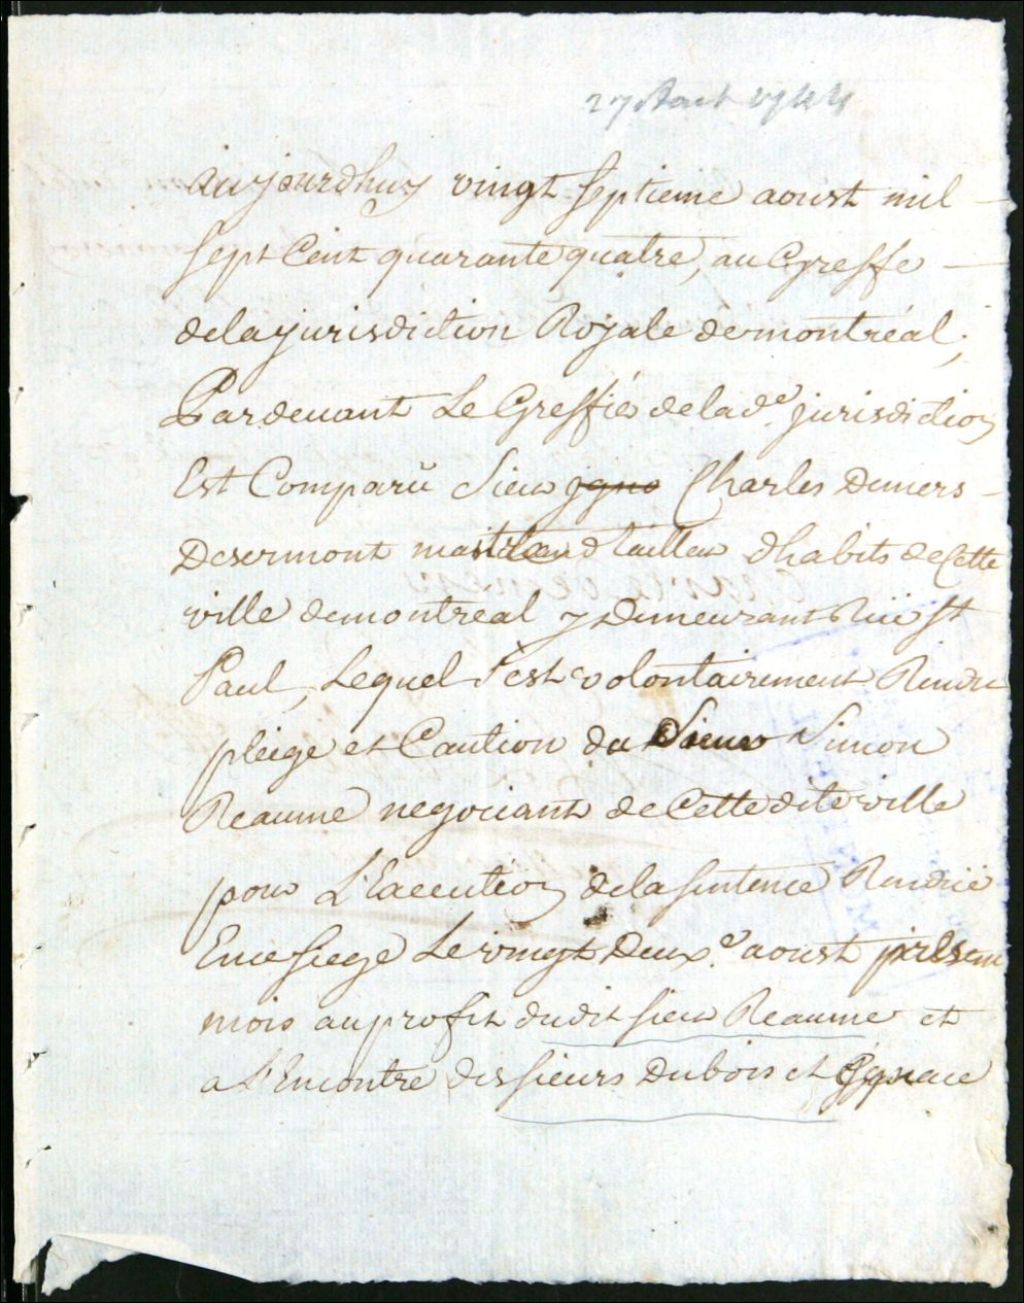 27 Aout 1744
Aujourdhuy vingt septieme aoust mil
sept Cent quarante quatre, au Greffe
de la jurisdiction Royale de montréal,
Pardevant Le Greffier de la de. jurisdiction
Est Comparü Sieur Charles Demers
Desermont maitre tailleur d'habits de Cette
ville de montreal y Demeurant Rüe St
Paul, Lequel s'est volontairement Rendu
pleige et Caution du Sieur Simon
Reaume negociant de Cette dite ville
pour L'Execution de la sentence Rendüe
En ce siege Le vingt Deuxe. aoust present
mois au profit dudit sieur Reaume et
a L'Encontre des sieurs Dubois et Ignace